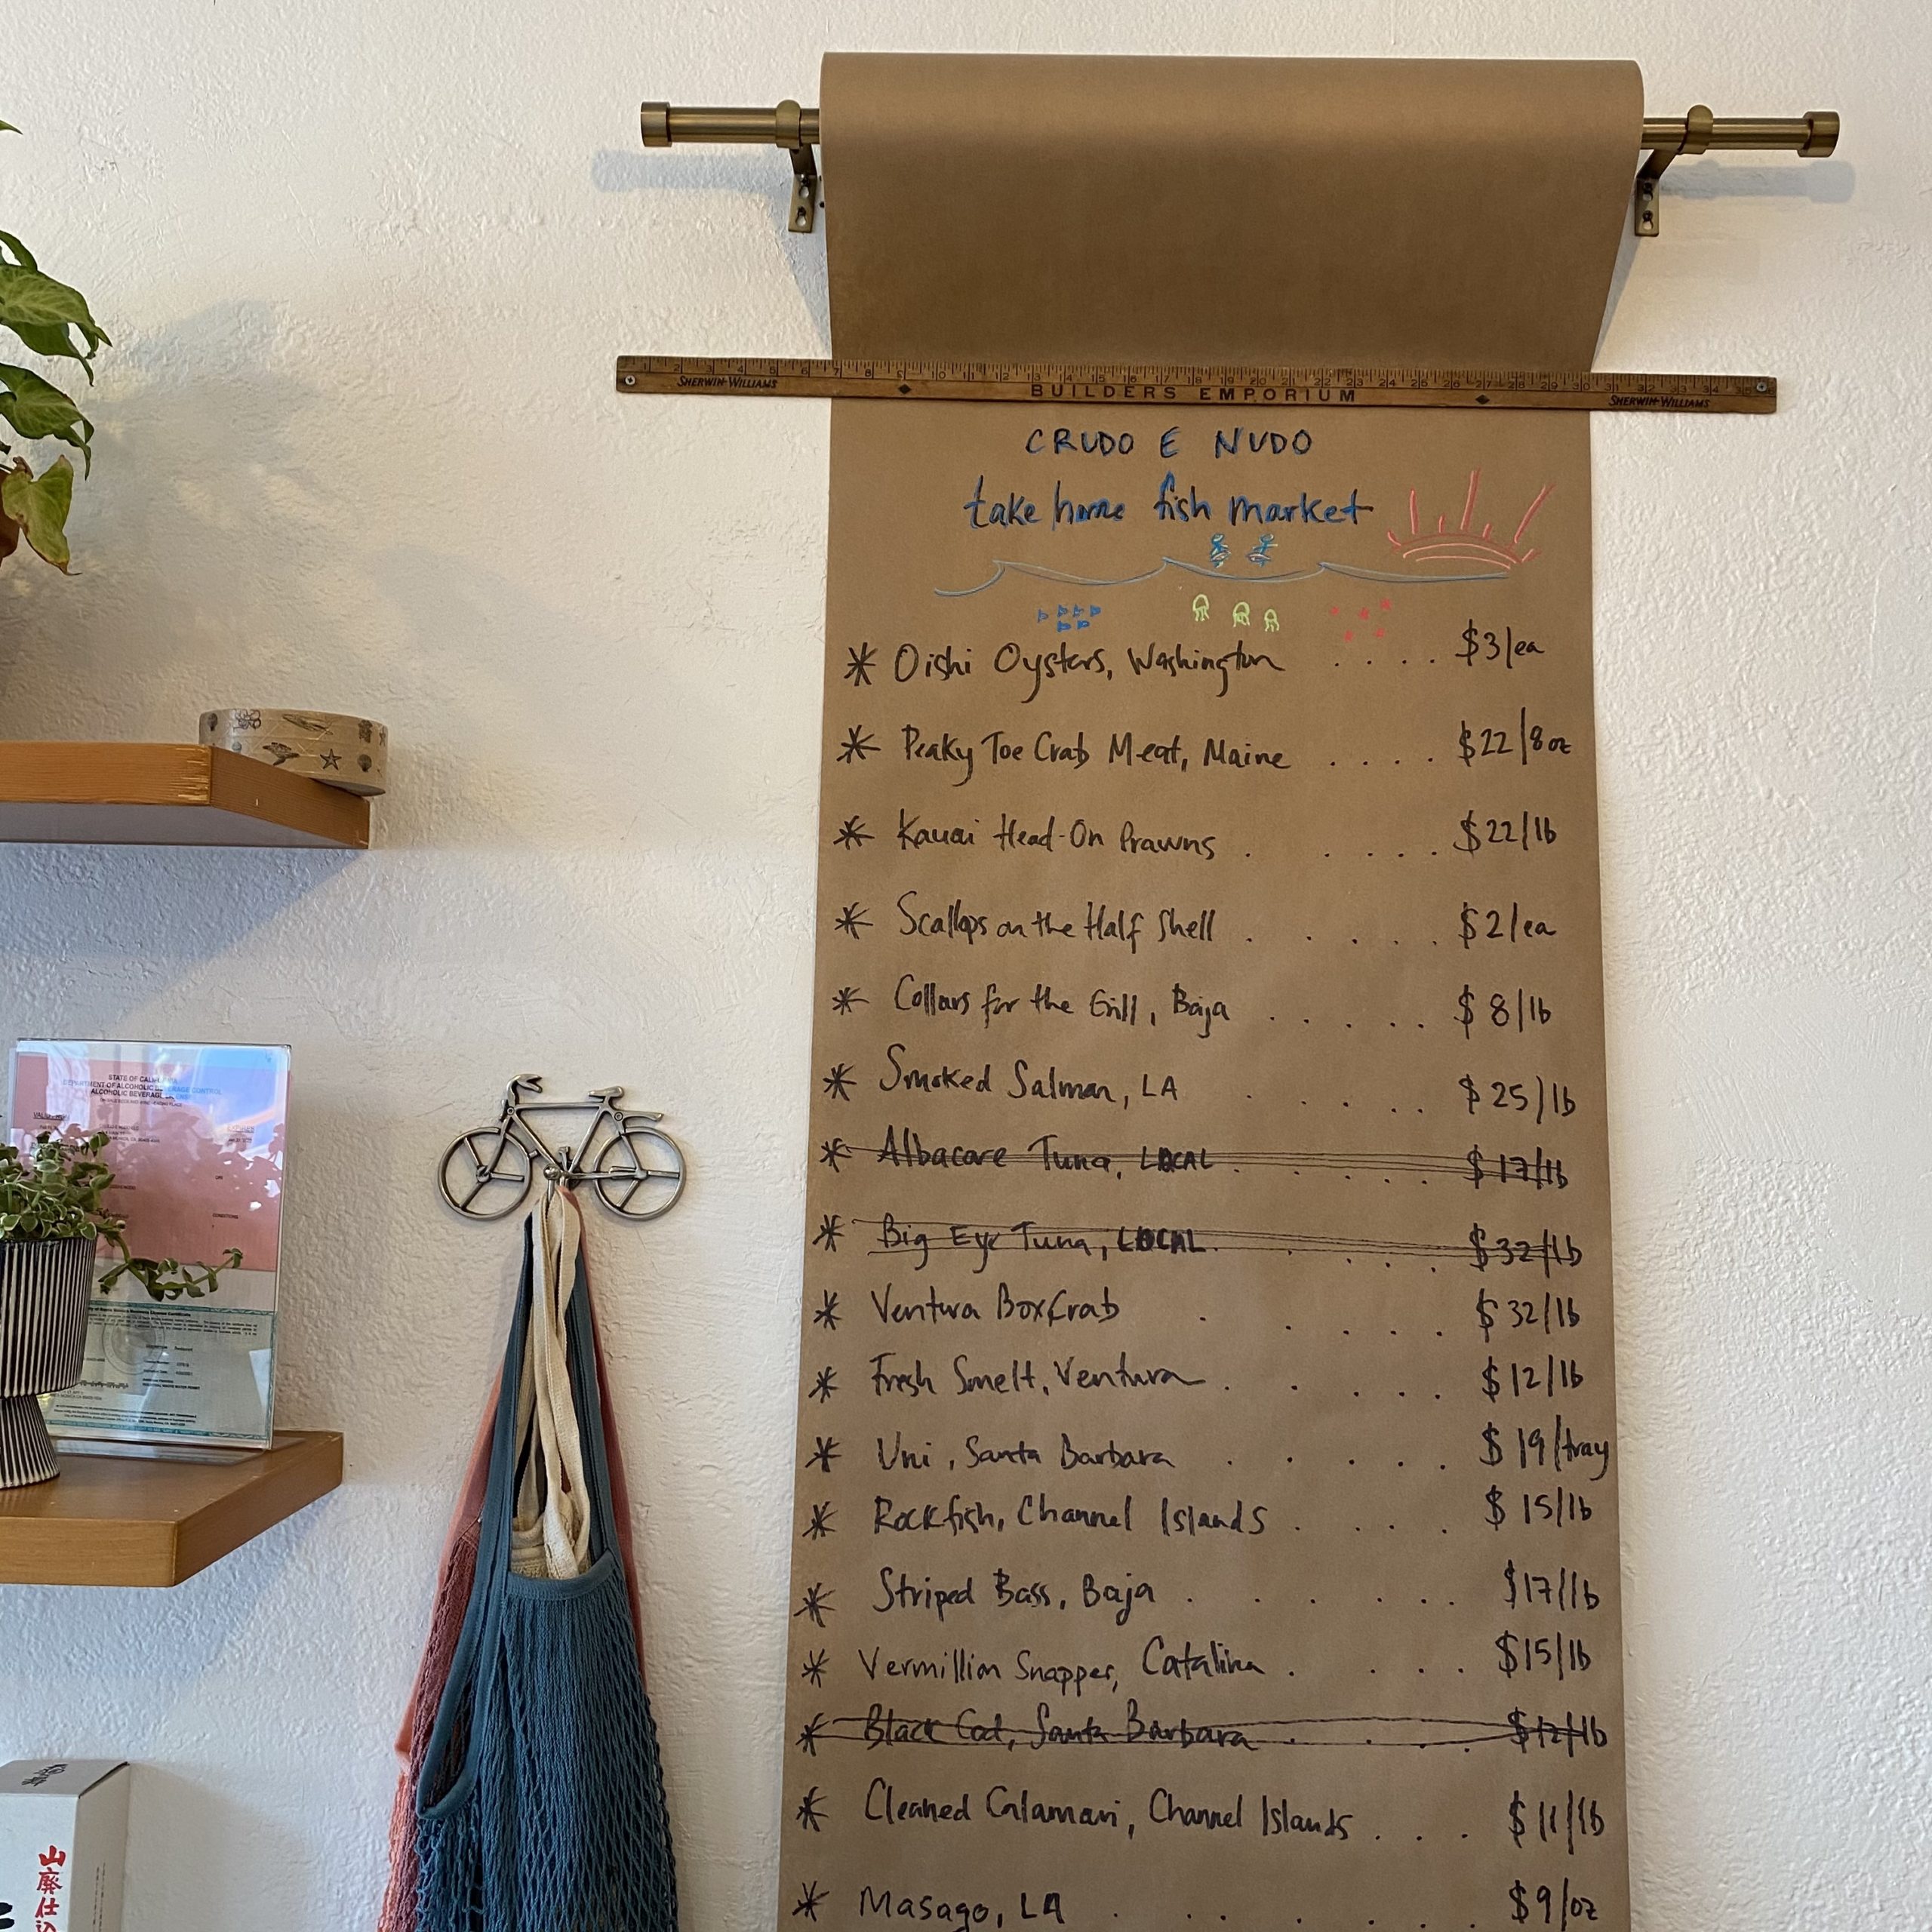 SHERWIN-WILLIAMS
BUILDERS EMPORIUM
SHERWIN-WILLIAMS
CRUDO E NUDO
take home fish market
* Oishi Oysters, Washington . . . . $3/ea
* Peaky Toe Crab Meat, Maine . . . . $22/8oz
* Kauai Head-On Prawns . . . . . $22/lb
* Scallops on the Half Shell . . . . . $2/ea
* Collars for the Grill, Baja . . . . . $8/lb
* Smoked Salmon, LA . . . . . $25/lb
* Albacore Tuna, LOCAL . . . . . $17/lb
* Big Eye Tuna, LOCAL . . . . . $32/lb
* Ventura Box Crab . . . . . $32/lb
* Fresh Smelt, Ventura . . . . . $12/lb
* Uni, Santa Barbara . . . . . $19/tray
* Rockfish, Channel Islands . . . . $15/lb
* Striped Bass, Baja . . . . . $17/lb
* Vermillion Snapper, Catalina . . . . $15/lb
* Black Cod, Santa Barbara . . . . $12/lb
* Cleaned Calamari, Channel Islands . . . $11/lb
* Masago, LA . . . . . . $9/oz
STATE OF CALIFORNIA
DEPARTMENT OF ALCOHOLIC BEVERAGE CONTROL
ALCOHOLIC BEVERAGE LICENSE
山廃仕込